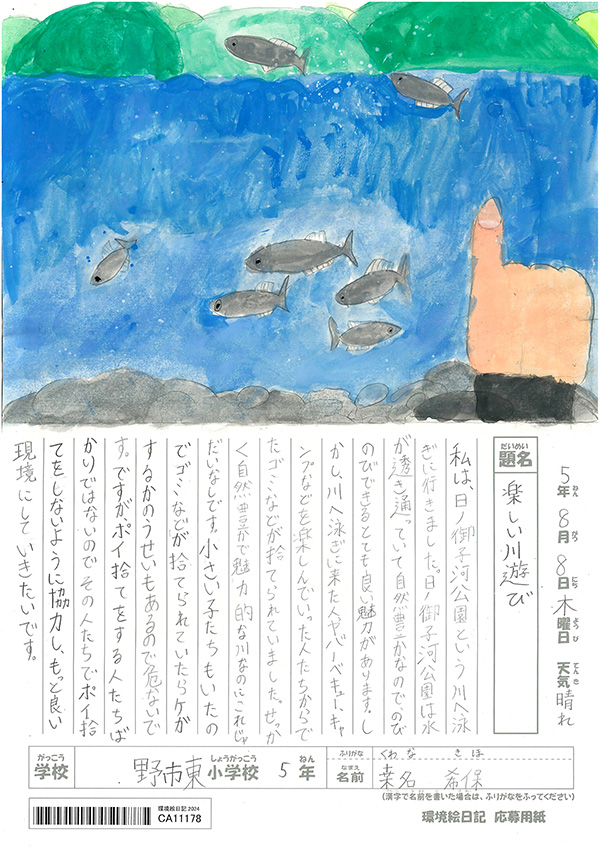 5年 8月 8日 木曜日 天気 晴れ
ねん がつ にち ようび てんき
だいめい
題名 楽しい川遊び
私は、日ノ御子河公園という川へ泳
ぎに行きました。日ノ御子河公園は水
が透き通っていて自然豊かなので、のび
のびできるとても良い魅力があります。し
かし、川へ泳ぎに来た人やバーベキュー、キャ
ンプなどを楽しんでいった人たちからで
たゴミなどが捨てられていました。せっか
く自然豊かで魅力的な川なのにこれじゃ
だいなしです。小さい子たちもいたの
でゴミなどが捨てられていたらケガ
するかのうせいもあるので危ないで
す。ですがポイ捨てをする人たちば
かりではないので その人たちでポイ捨
てをしないように協力し、もっと良い
現境にしていきたいです。
がっこう しょうがっこう ねん
学校 野市東小学校 5年
ふりがな くわな きほ
なまえ
名前 桒名 希保
(漢字で名前を書いた場合は、ふりがなをふってください)
環境絵日記 2024
CA11178
環境絵日記 応募用紙